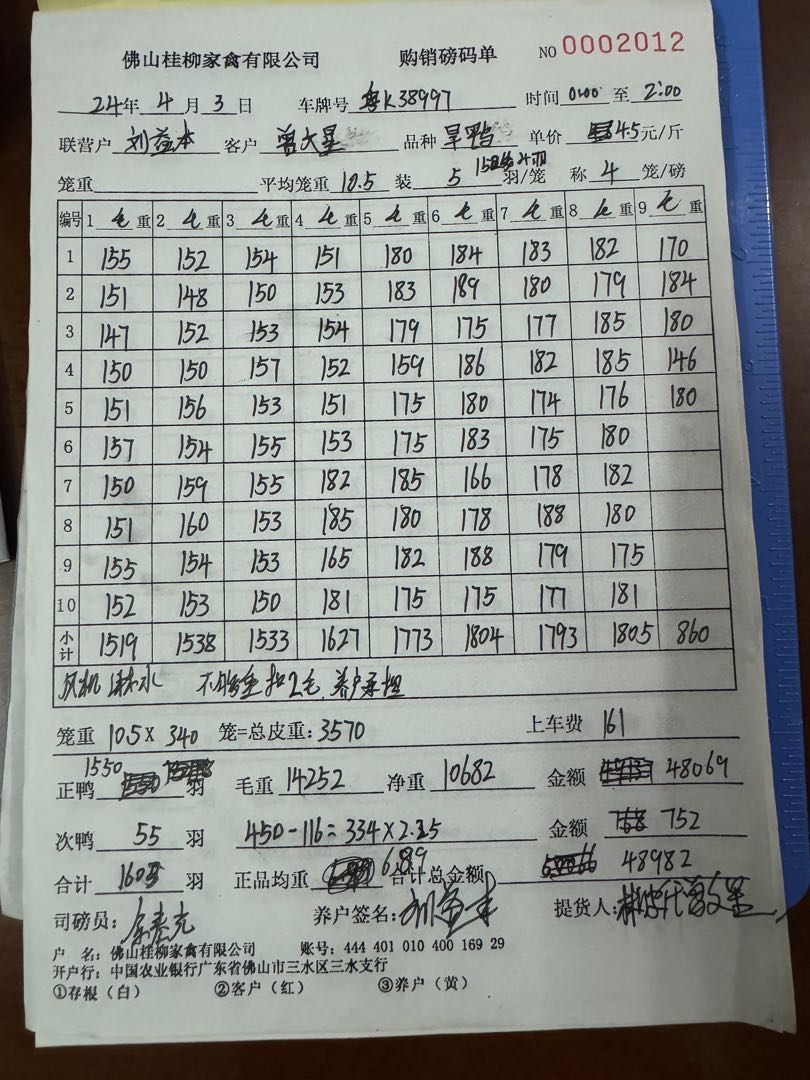 佛山桂柳家禽有限公司 购销磅码单 NO 0002012
24年 4月 3日 车牌号 粤K38997 时间 0:00 至 2:00
联营户 刘益本 客户 曾文星 品种 旱鸭 单价 4.5元/斤
笼重 平均笼重 10.5 装 5 羽/笼 称 4 笼/磅
编号 1 毛重 2 毛重 3 毛重 4 毛重 5 毛重 6 毛重 7 毛重 8 毛重 9 毛重
1 155 152 154 151 180 184 183 182 170
2 151 148 150 153 183 189 180 179 184
3 147 152 153 154 179 175 177 185 180
4 150 150 157 152 159 186 182 185 146
5 151 156 153 151 175 180 174 176 180
6 157 154 155 153 175 183 175 180
7 150 159 155 182 185 166 178 182
8 151 160 153 185 180 178 188 180
9 155 154 153 165 182 188 179 175
10 152 153 150 181 175 175 177 181
小计 1519 1538 1533 1627 1773 1804 1793 1805 860
风机 淋水 不够重扣2毛,养户承担
笼重 10.5 X 340 笼=总皮重:3570 上车费 161
正鸭 1550 羽 毛重 14252 净重 10682 金额 48069
次鸭 55 羽 450-116=334×2.25 金额 752
合计 1605 羽 正品均重 6.89 合计总金额 48982
司磅员: 养户签名:刘益本 提货人:
户 名:佛山桂柳家禽有限公司 账号:444 401 010 400 169 29
开户行:中国农业银行广东省佛山市三水区三水支行
①存根(白) ②客户(红) ③养户(黄)